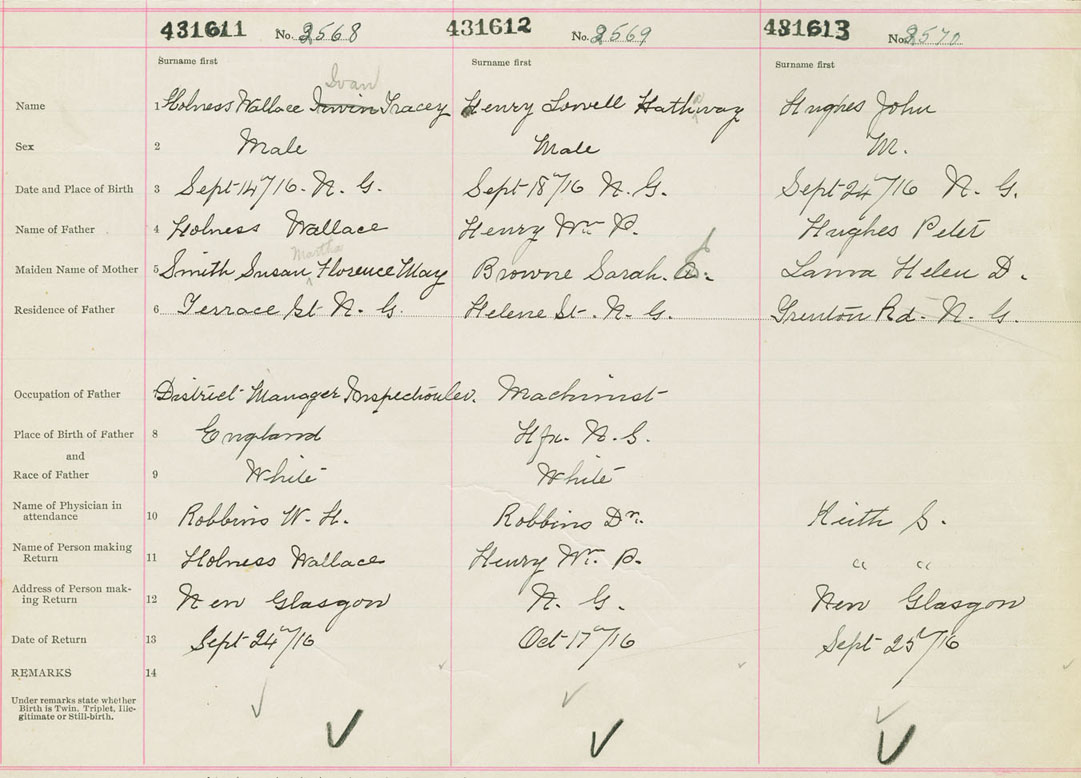 431611 No. 2568 431612 No. 2569 431613 No. 2570
Surname first Surname first Surname first
Ivan
Name 1 Holness Wallace Irwin Tracey Henry Lowell Hathway Hughes John
Sex 2 Male Male M.
Date and Place of Birth 3 Sept 14"/16. N. G. Sept 18"/16 N. G. Sept 24"/16 N. G.
Name of Father 4 Holness Wallace Henry Wm P. Hughes Peter
Martha
Maiden Name of Mother 5 Smith Susan ^ Florence May Browne Sarah. Helen D.
Residence of Father 6 Terrace St N. G. Helene St. N. G. Trenton Rd. N. G.
Occupation of Father District Manager Machinist
Place of Birth of Father 8 England Hfx. N. S.
and
Race of Father 9 White White
Name of Physician in
attendance 10 Robbins W. H. Robbins Dr. Keith S.
Name of Person making
Return 11 Holness Wallace Henry Wm. P. " "
Address of Person mak-
ing Return 12 New Glasgow N. G. New Glasgow
Date of Return 13 Sept 24"/16 Oct 17"/16 Sept 25"/16
REMARKS 14
Under remarks state whether
Birth is Twin, Triplet, Ille-
gitimate or Still-birth.